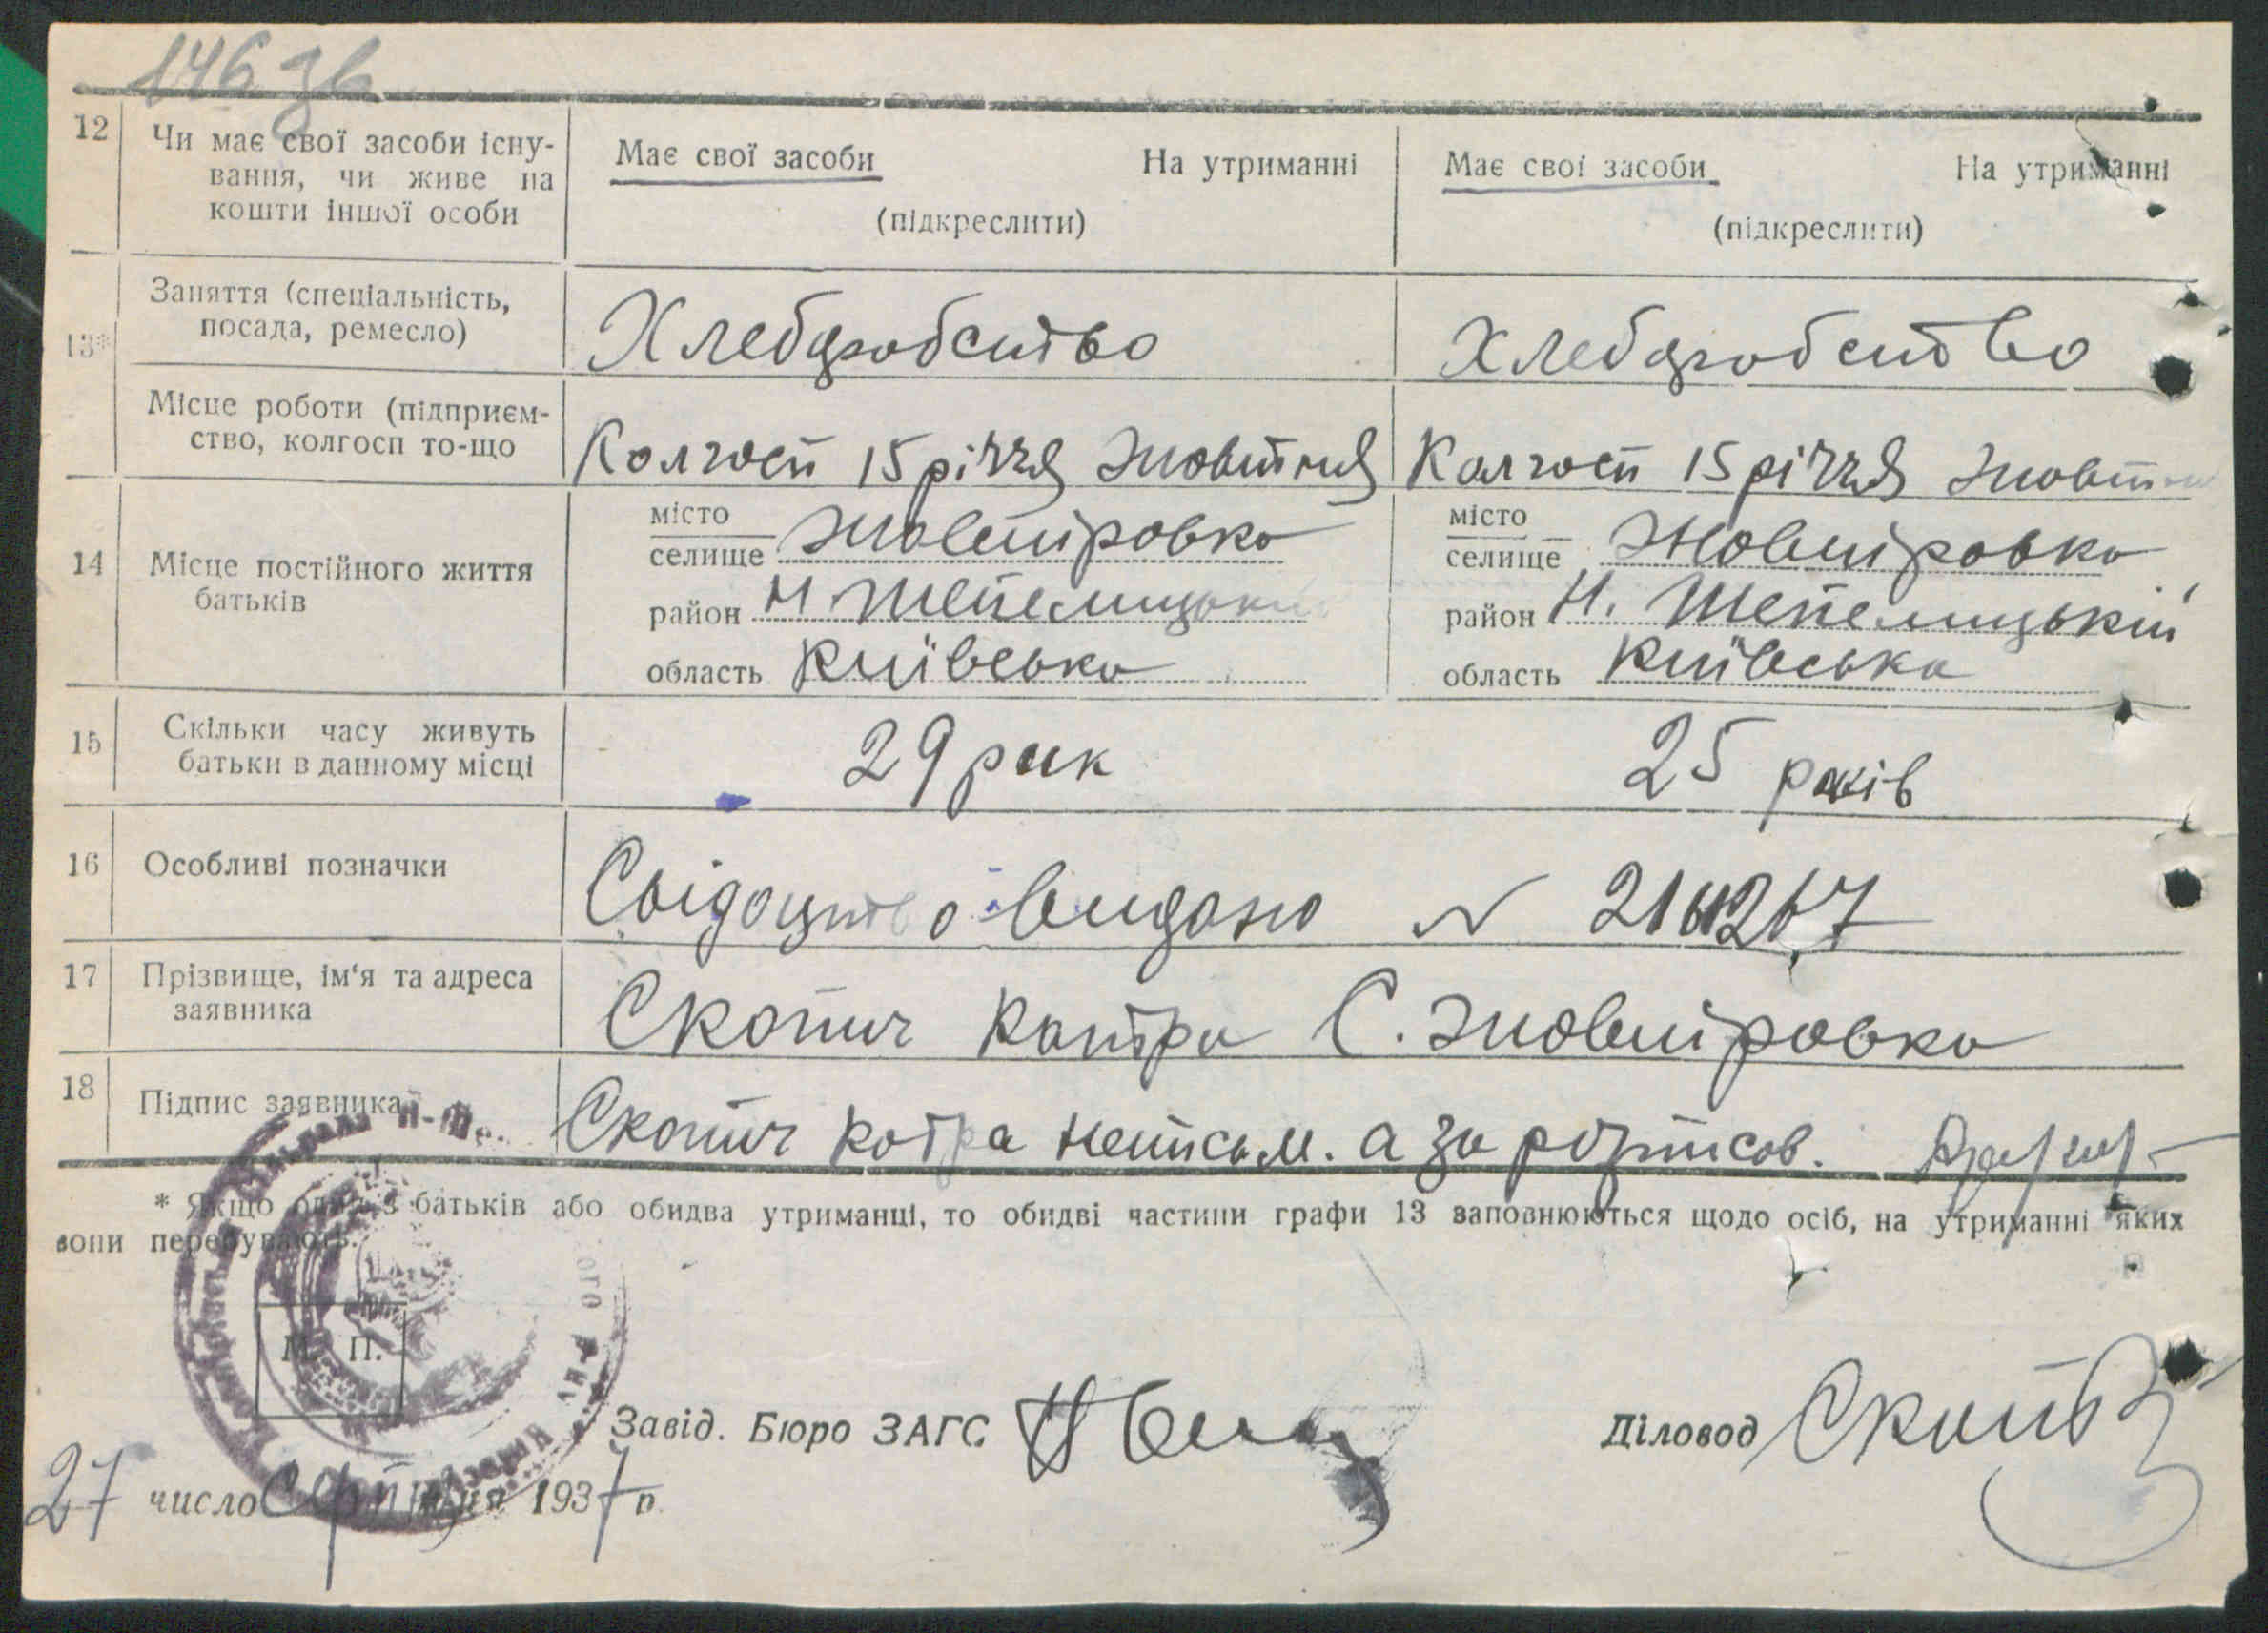 146 зв
12 Чи має свої засоби існу-
вання, чи живе на
кошти іншої особи
Має свої засоби На утриманні
(підкреслити)
Має свої засоби На утриманні
(підкреслити)
13*
Заняття (спеціальність,
посада, ремесло)
Хлебаробство
Хлебаробство
Місце роботи (підприєм-
ство, колгосп то-що
Колгосп 15 річчя Жовтня
Колгосп 15 річчя Жовтня
14 Місце постійного життя
батьків
місто
селище Жовтіровка
район Н. Шепелицький
область Київська
місто
селище Жовтіровка
район Н. Шепелицькій
область Київська
15 Скільки часу живуть
батьки в данному місці
29 рик
25 років
16 Особливі позначки
Свідоцтво видано N
17 Прізвище, ім'я та адреса
заявника
Скопич Катра С. Жовтіровка
18 Підпис заявника
Скопич Котра неписьм. а за розписов.
* Якщо один з батьків або обидва утриманці, то обидві частини графи 13 заповнюються щодо осіб, на утриманні яких
вони перебувають.
М. П.
Завід. Бюро ЗАГС
Діловод
27 число Серпня 1937 р.